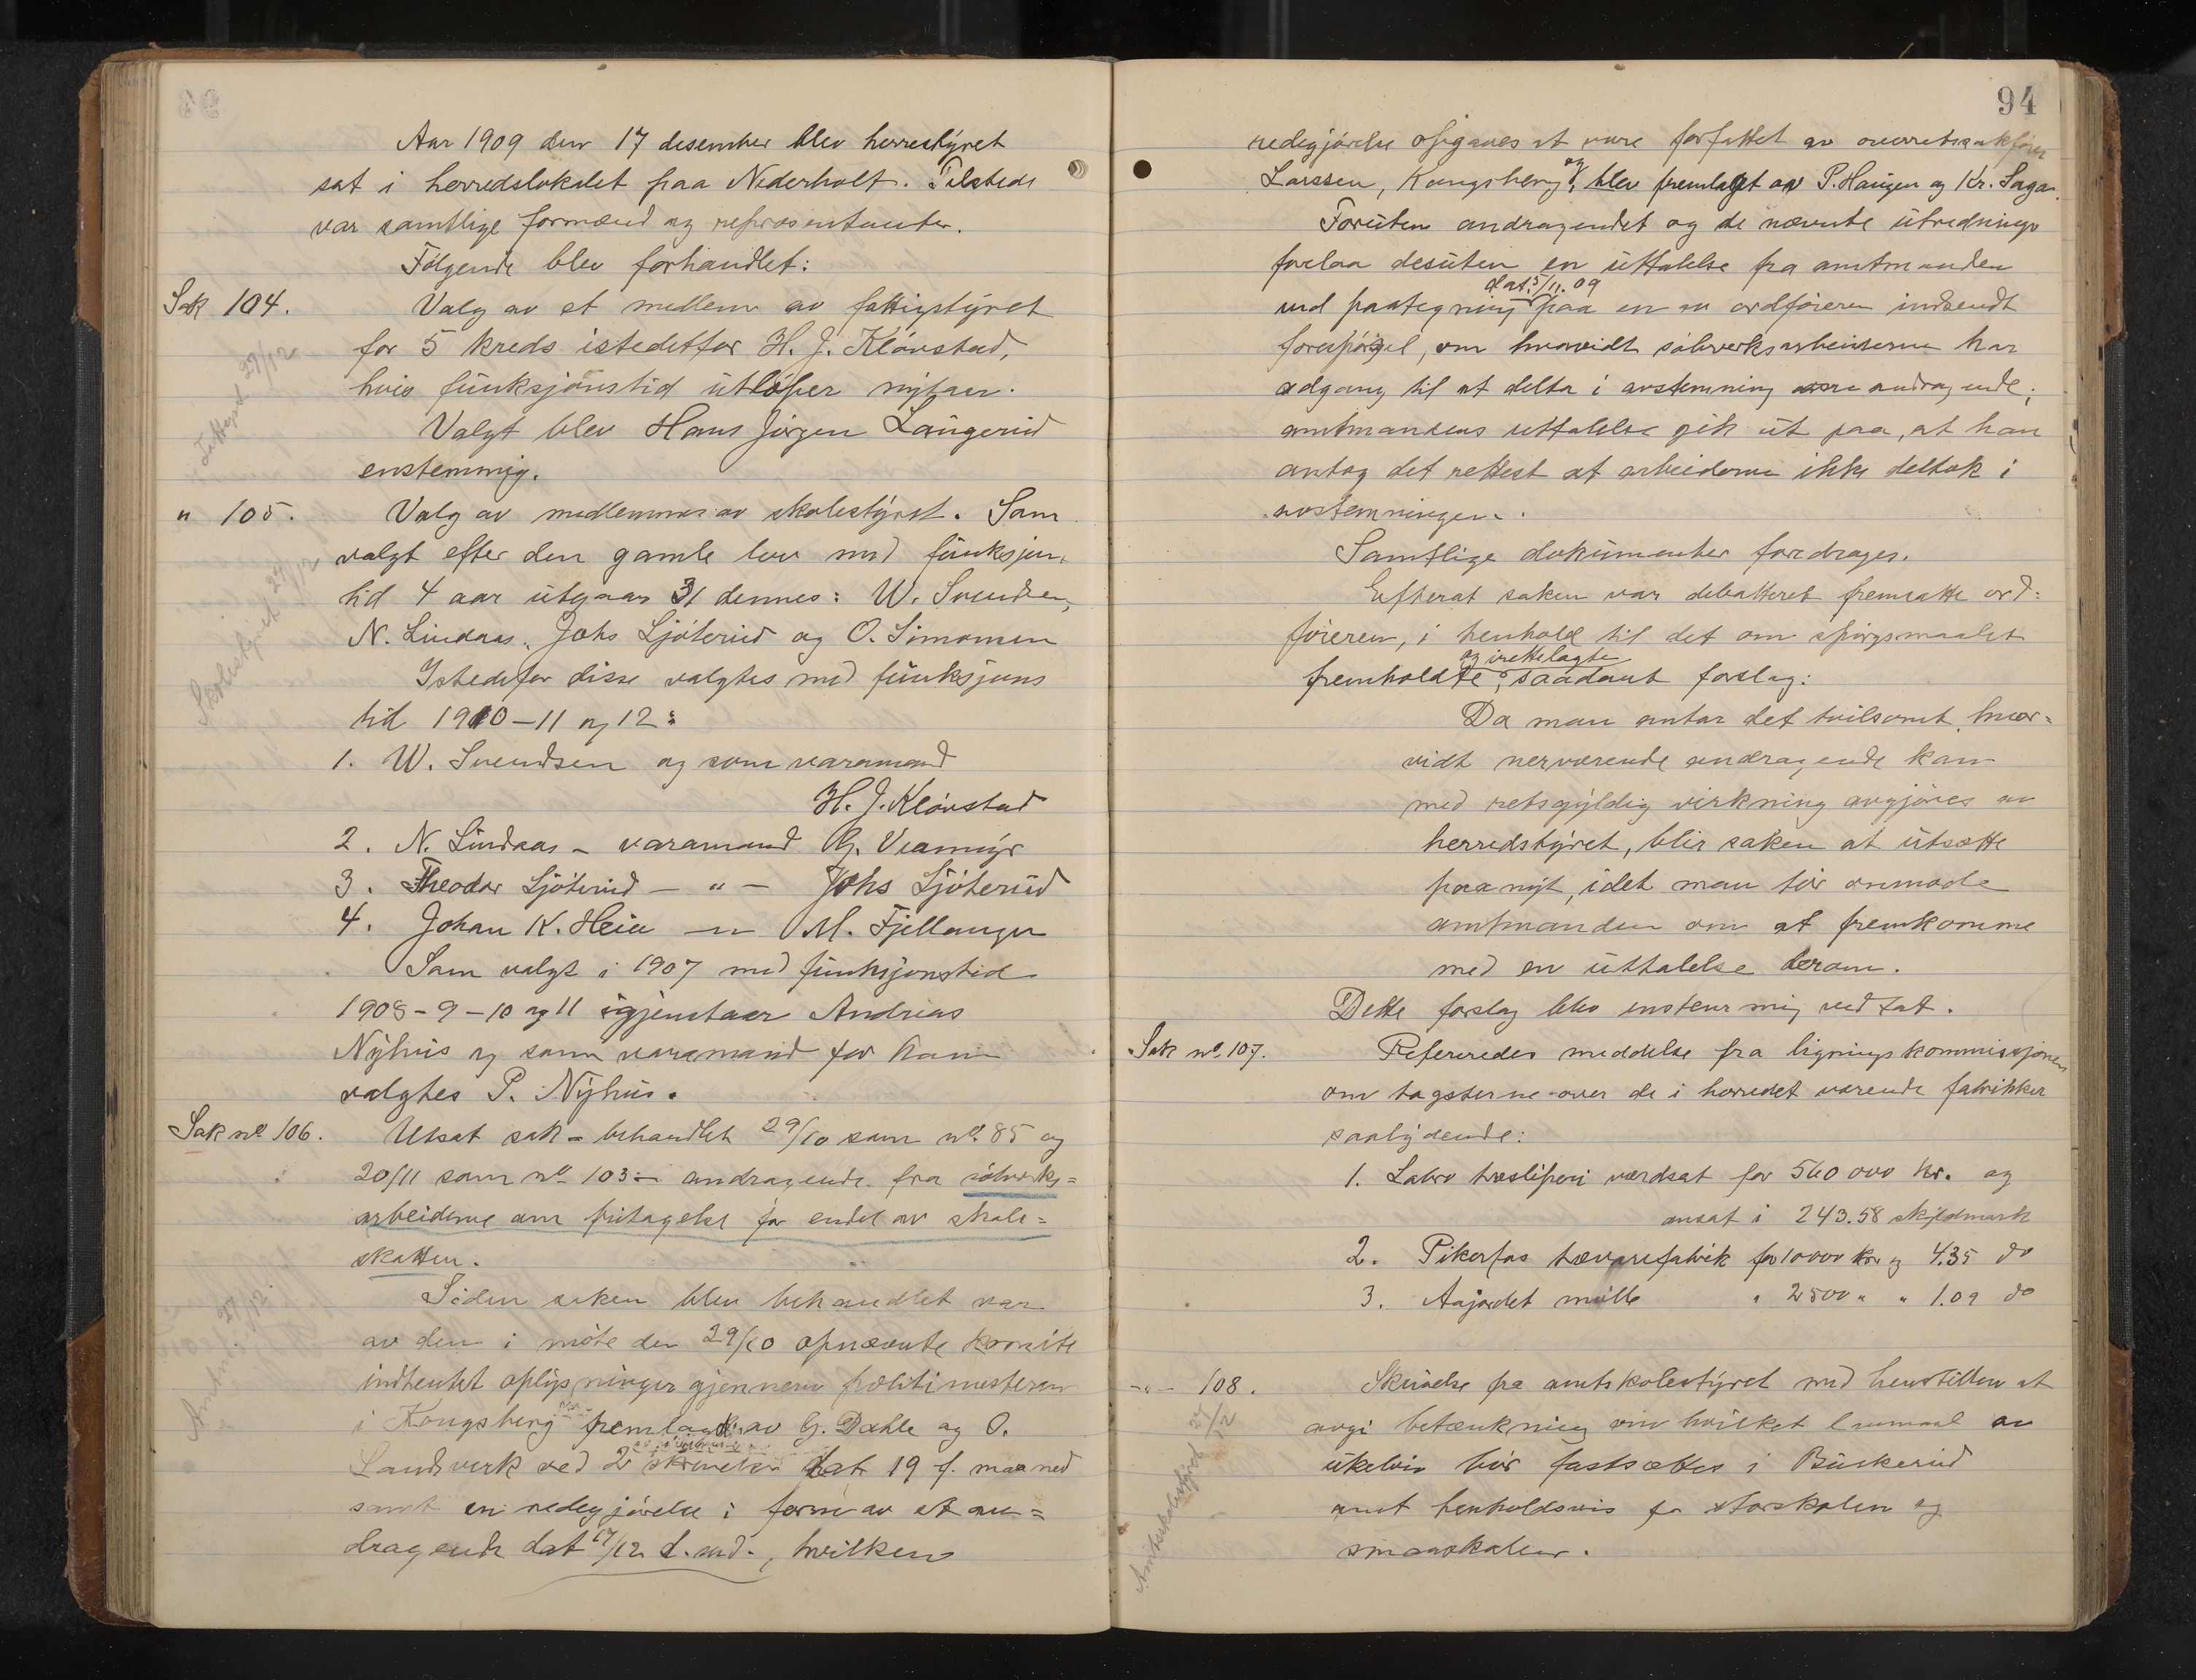 Aar 1909 den 17 desember blev herrestyret
sat i herredslokalet paa Nederholt. Tilstede
var samtlige formænd og representanter.
Følgende blev forhandlet:
Sak 104. Valg av et medlem av fattigstyret
for 5 kreds istedetfor H. J. Kløvstad,
hvis funksjonstid utløper nytaar.
Valgt blev Hans Jørgen Langerud
enstemmig.
Fattigst 27/12
" 105. Valg av medlemmer av skolestyret. Som
valgt efter den gamle lov med funksjons
tid 4 aar utgaar 31 dennes: W. Svendsen,
N. Lindaas, Johs Ljøterud og O. Simonsen
Istedetfor disse valgtes med funksjons
tid 1910-11 og 12:
Skolestyret 27/12
1. W. Svendsen og som varamand
H. J. Kløvstad
2. N. Lindaas - varamand G. Veamyr
3. Theodor Ljøterud - " - Johs Ljøterud
4. Johan K. Heia - " M. Fjellanger
Som valgt i 1907 med funksjonstid
1908-9-10 og 11 igjenstaar Andreas
Nyhus og som varamand for ham
valgtes P. Nyhus.
Sak no 106. Utsat sak - behandlet 29/10 som no 85 og
20/11 som no 103 - andragende fra sølvverks=
arbeiderne om fritagelse for endel av skole=
skatten.
Siden saken blev behandlet var
av den i møte den 29/10 opnævnte komite
indhentet oplysninger gjennem politimesteren
i Kongsberg fremlagt av G. Dahle og O.
Landsverk ved 2 skrivelser dat 19 f. maaned
samt en redegjørelse i form av et an=
dragende dat 17/12 d. md., hvilken
Amtm. 27/12.
94
redegjørelse opgaves at være forfattet av overretssakfører
Larssen, Kongsberg, og blev fremlaget av P. Haugen og Kr. Saga.
Foruten andragendet og de nævnte utredninger
forelaa desuten en uttalelse fra amtmanden
dat. 5/11.09
ved paategning paa en av ordføreren indsendt
forespørgsel, om hvorvidt sølvverksarbeiderne har
adgang til at delta i avstemning andragende;
amtmandens uttalelse gik ut paa, at han
antog det rettest at arbeiderne ikke deltok i
avstemningen.
Samtlige dokumenter foredrages.
Efterat saken var debatteret fremsatte ord=
føreren, i henhold til det om spørgsmaalet
og irettelagte
fremholdte, saadant forslag:
Da man antar det tvilsomt hvor=
vidt nerværende andragende kan
med retsgyldig virkning avgjøres av
herredstyret, blir saken at utsætte
paa nyt, idet man tør anmode
amtmanden om at fremkomme
med en uttalelse derom.
Dette forslag blev enstemmig vedtat.
Sak no. 107. Refereredes meddelse fra ligningskommissjonen
om tagsterne over de i herredet værende fabrikker
saalydende:
1. Labro træsliperi værdsat for 560 000 kr. og
ansat i 243.58 skyldmark
2. Pikerfos trævarefabrik for 10000 kr og 4.35 do
3. Aajordet mølle " 2500 " " 1.09 do
-"- 108. Skrivelse fra amtskolestyret med henstillen at
avgi betænkning om hvilket lærermaal av
ukeløn bør fastsættes i Buskerud
amt henholdsvis for storskolen og
smaaskolen.
Amtsskolestyret 27/12